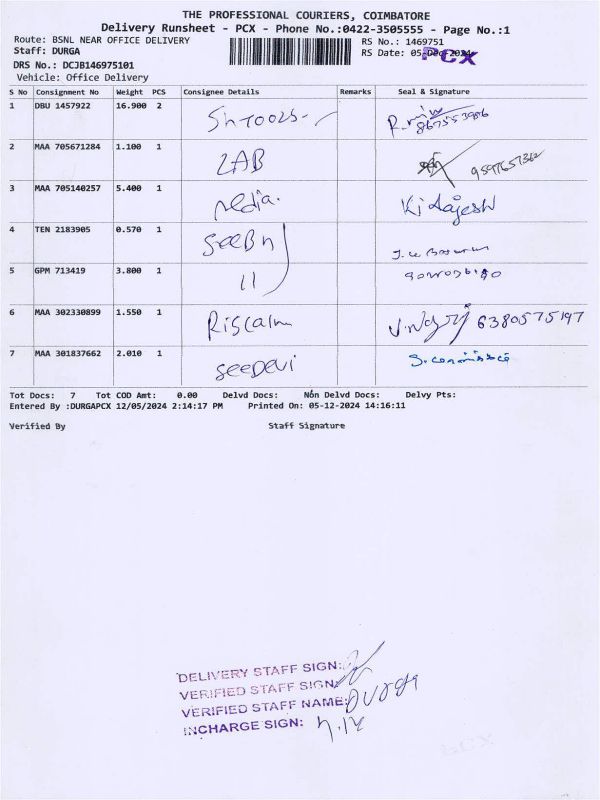 THE PROFESSIONAL COURIERS, COIMBATORE
Delivery Runsheet - PCX - Phone No.:0422-3505555 - Page No.:1
Route: BSNL NEAR OFFICE DELIVERY RS No.: 1469751
Staff: DURGA RS Date: 05-Dec-2024
PCX
DRS No.: DCJB146975101
Vehicle: Office Delivery
S No Consignment No Weight PCS Consignee Details Remarks Seal & Signature
1 DBU 1457922 16.900 2
2 MAA 705671284 1.100 1 ZAB
3 MAA 705140257 5.400 1 media.
4 TEN 2183905 0.570 1
5 GPM 713419 3.800 1 11
6 MAA 302330899 1.550 1 6380575197
7 MAA 301837662 2.010 1 SEEDEVI
Tot Docs: 7 Tot COD Amt: 0.00 Delvd Docs: Non Delvd Docs: Delvy Pts:
Entered By :DURGAPCX 12/05/2024 2:14:17 PM Printed On: 05-12-2024 14:16:11
Verified By Staff Signature
DELIVERY STAFF SIGN:
VERIFIED STAFF SIGN:
VERIFIED STAFF NAME: DURGA
INCHARGE SIGN:
PCX